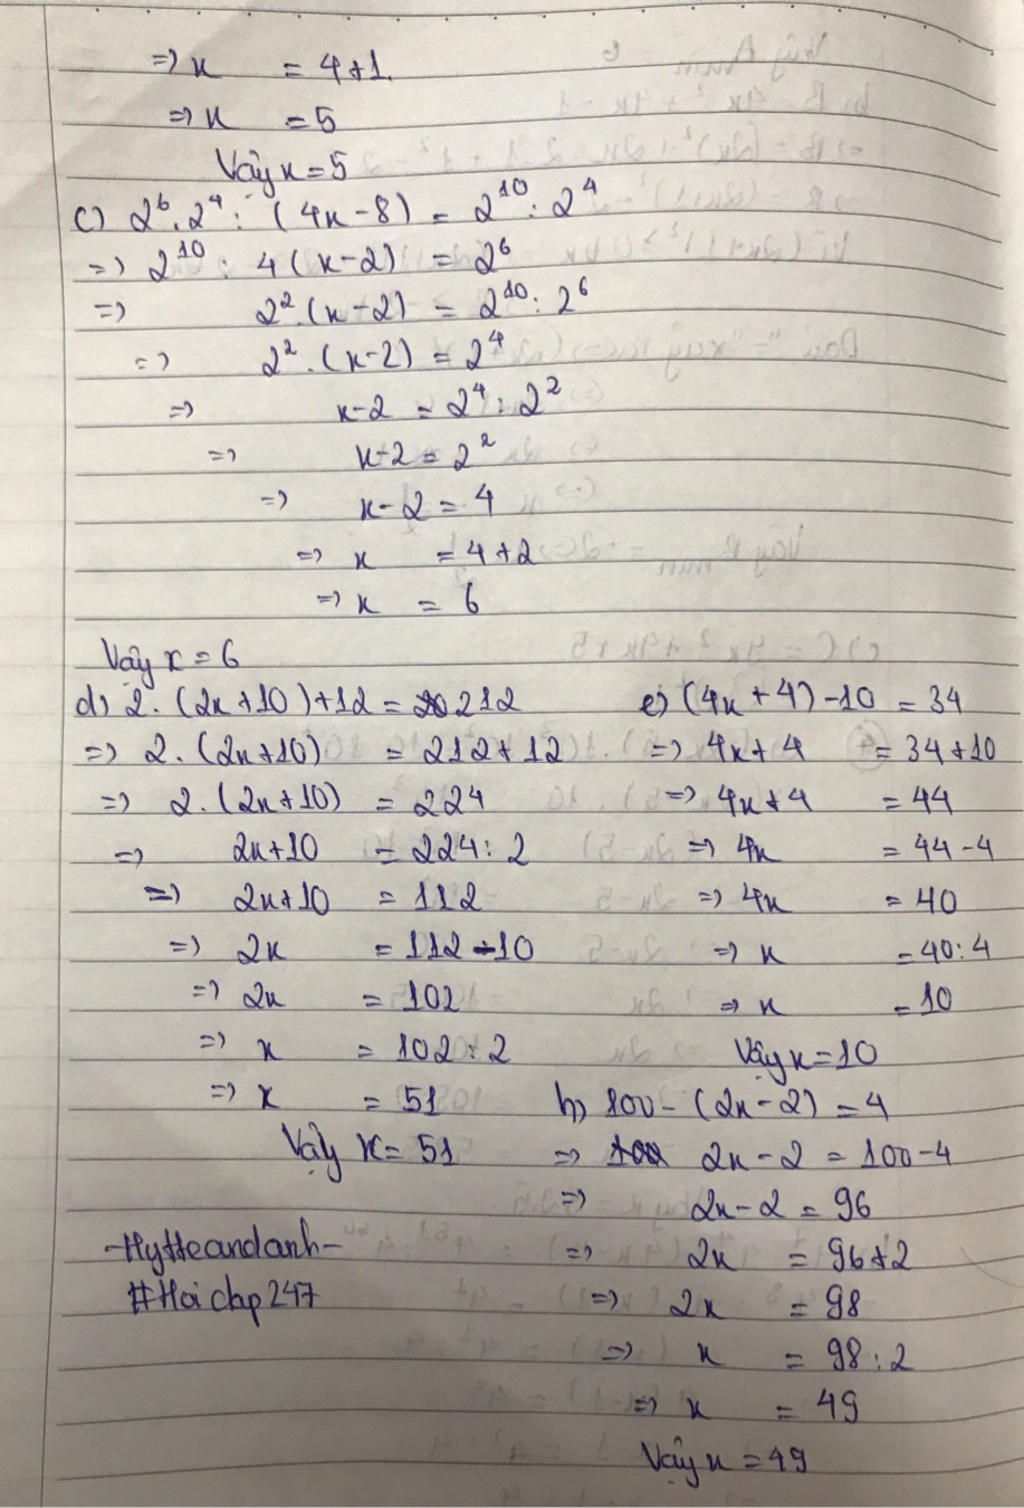 => x = 4+1.
=> x = 5
Vậy x = 5
c) 2⁶.2⁴ : (4x-8) = 2¹⁰ : 2⁴
=> 2¹⁰ : 4(x-2) = 2⁶
=> 2².(x-2) = 2¹⁰ : 2⁶
=> 2².(x-2) = 2⁴
=> x-2 = 2⁴ : 2²
=> x-2 = 2²
=> x-2 = 4
=> x = 4+2
=> x = 6
Vậy x = 6
d) 2.(2x+10)+12 = 212
=> 2.(2x+10) = 212+12
=> 2.(2x+10) = 224
=> 2x+10 = 224 : 2
=> 2x+10 = 112
=> 2x = 112-10
=> 2x = 102
=> x = 102 : 2
=> x = 51
Vậy x = 51
-HyHeandanh-
#Hoidap247
e) (4x+4)-10 = 34
=> 4x+4 = 34+10
=> 4x+4 = 44
=> 4x = 44-4
=> 4x = 40
=> x = 40:4
=> x = 10
Vậy x = 10
h) 100-(2x-2) = 4
=> 2x-2 = 100-4
=> 2x-2 = 96
=> 2x = 96+2
=> 2x = 98
=> x = 98 : 2
=> x = 49
Vậy x = 49